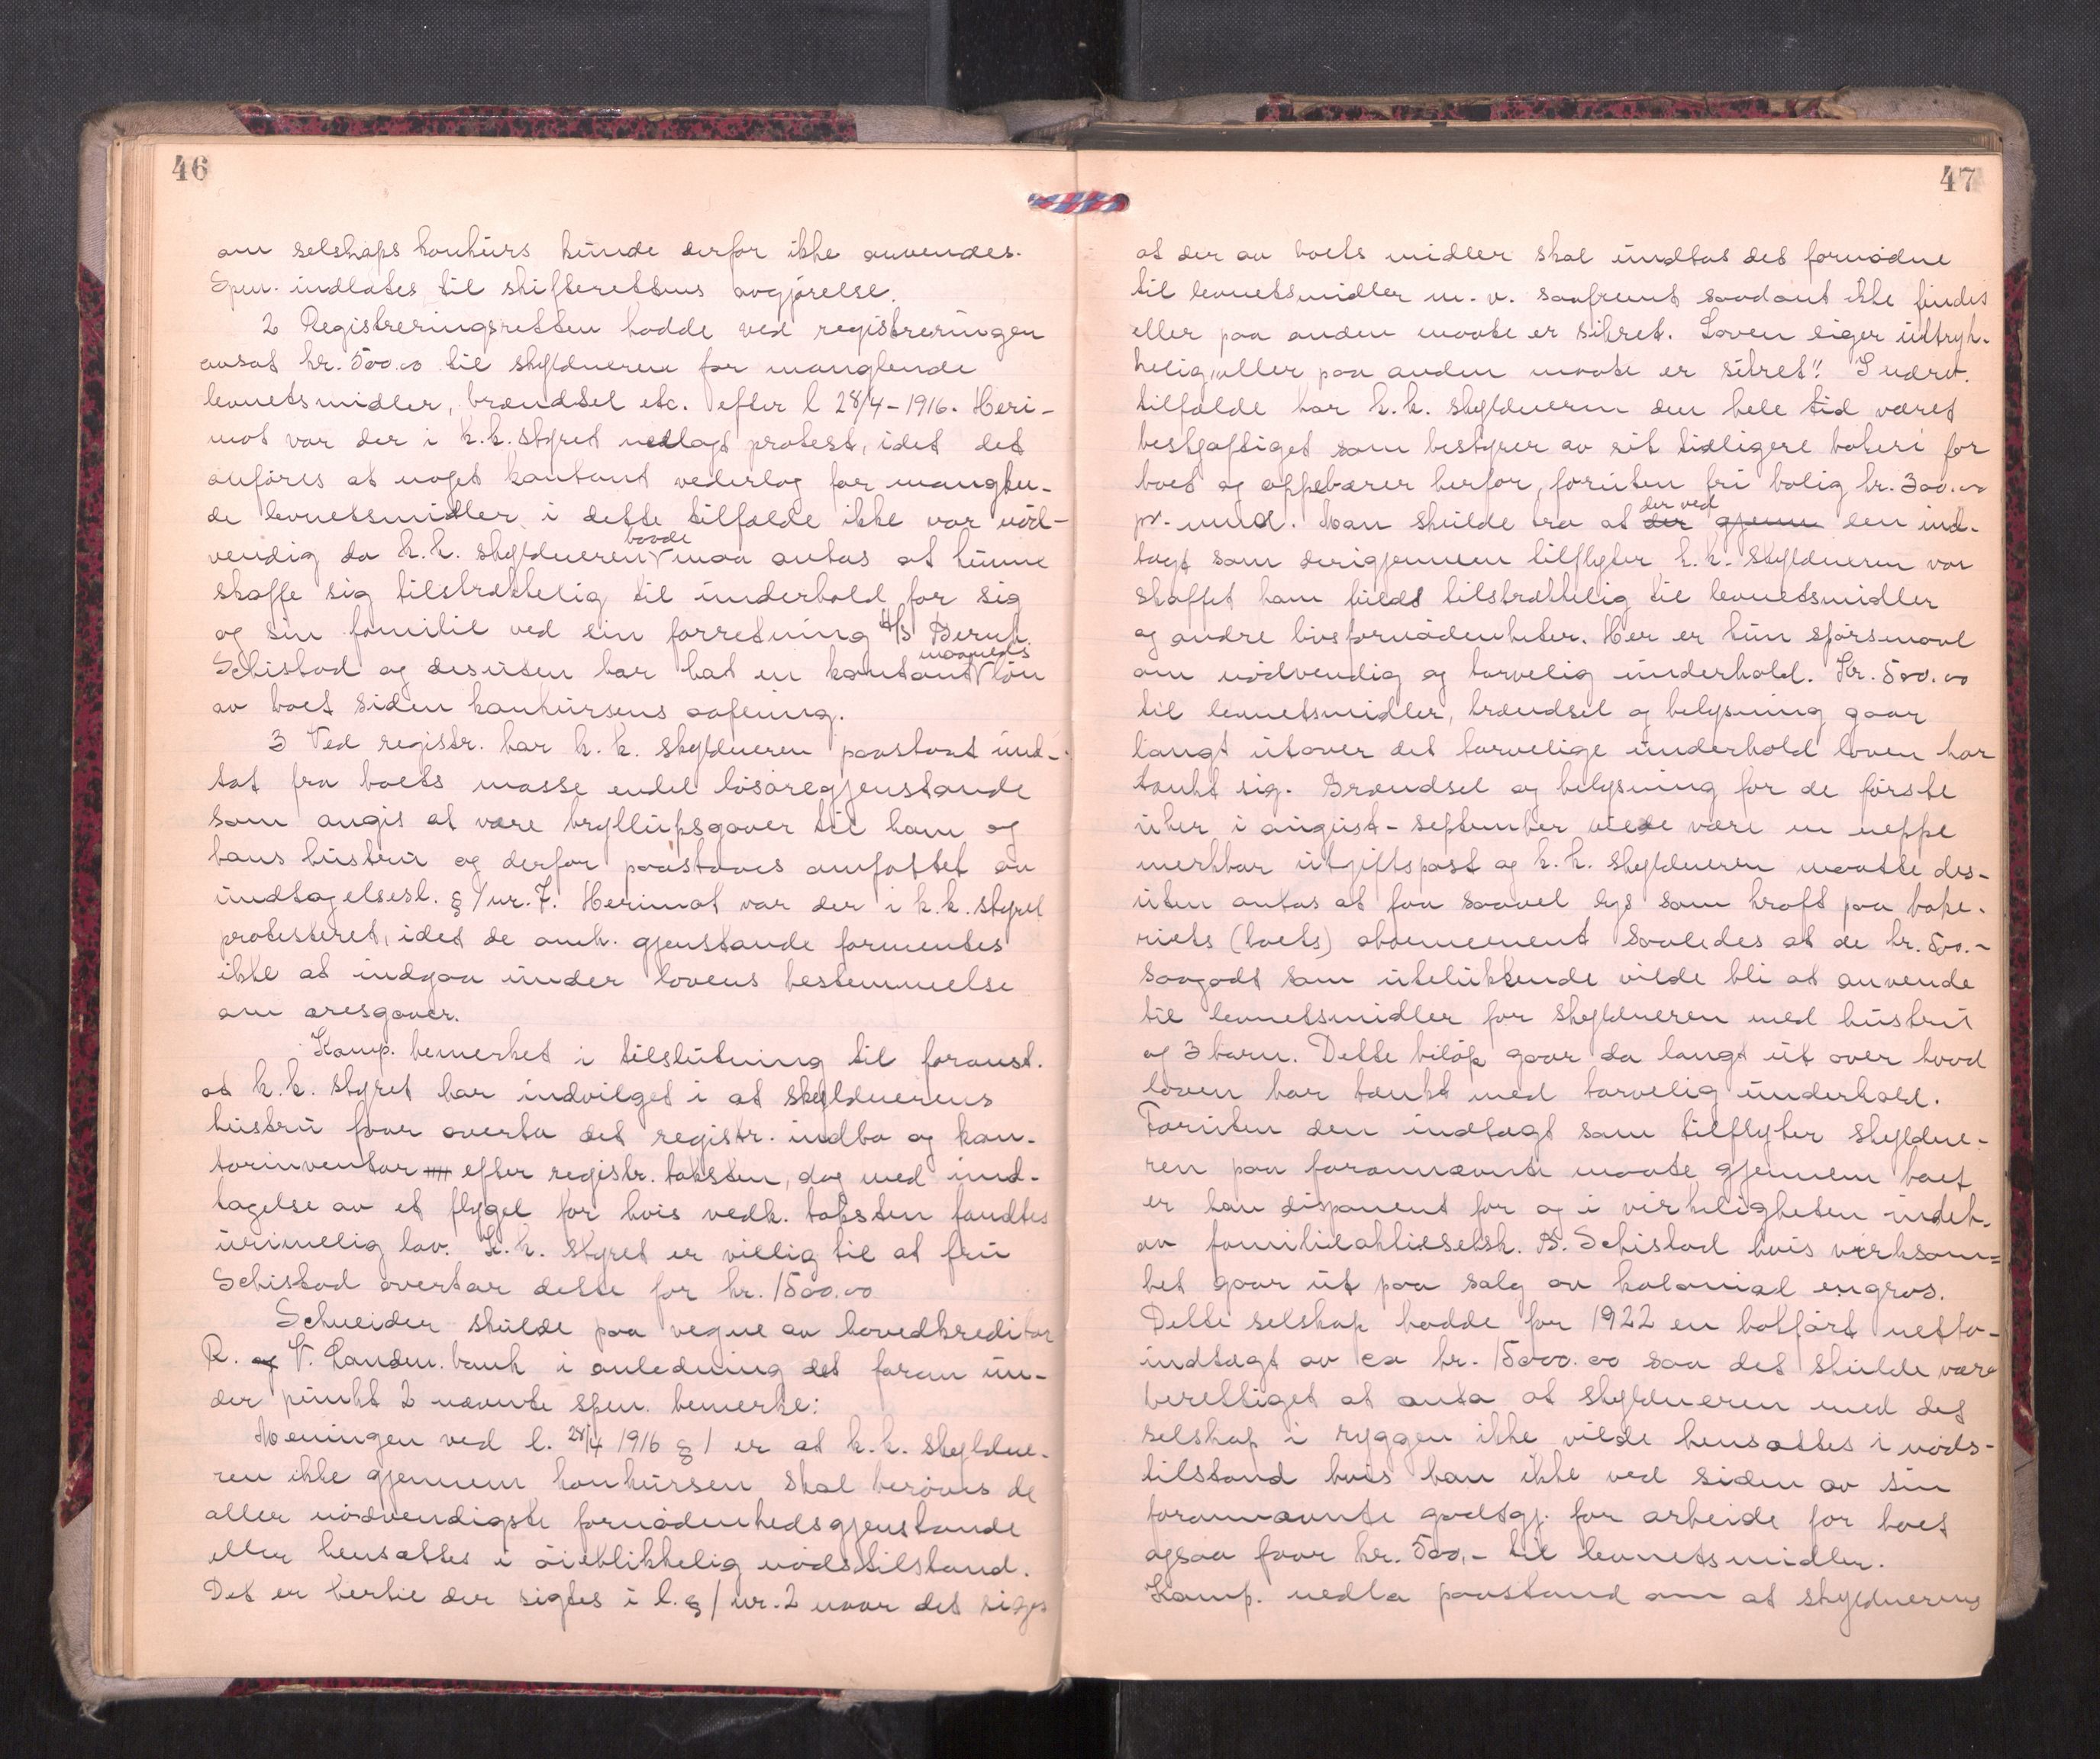 46
om selskaps konkurs kunde derfor ikke anvendes.
Spm. indlates til skifterettens avgjørelse.
2 Registreringsretten hadde ved registreringen
ansat kr. 500.00 til skyldneren for manglende
levnetsmidler, brændsel etc. efter l 28/4-1916. Heri-
mot var der i k.k.styret nedlagt protest, idet det
anføres at noget kontant vederlag for manglen-
de levnetsmidler i dette tilfælde ikke var nød-
vendig da k.k. skyldneren baade maa antas at kunne
skaffe sig tilstrækkelig til underhold for sig
og sin familie ved sin forretning A/S Bernh.
Schistad og desuten har hat en kontant maaneds løn
av boet siden konkursens aapning.
3 Ved registr. har k.k. skyldneren paastaat und-
tat fra boets masse endel løsøregjenstande
som angis at være bryllupsgaver til ham og
hans hustru og derfor paastaaes omfattet av
undtagelsesl. § 1 nr. 7. Herimot var der i k.k. styret
protesteret, idet de omh. gjenstande formentes
ikke at indgaa under lovens bestemmelse
om æresgaver.
Komp. bemerket i tilslutning til foranst.
at k.k. styret har indvilget i at skyldnerens
hustru faar overta det registr. indbo og kon-
torinventar efter registr. taksten, dog med und-
tagelse av et flygel for hvis vedk. taksten fandtes
urimelig lav. K.k. styret er villig til at fru
Schistad overtar dette for kr. 1500.00
Schneider skulde paa vegne av hovedkreditor
R. og V. Landm. bank i anledning det foran un-
der punkt 2 nævnte spm. bemerke:
Meningen ved l. 28/4 1916 § 1 er at k.k. skyldne-
ren ikke gjennem konkursen skal berøves de
aller nødvendigste fornødenhedsgjenstande
eller hensættes i øieblikkelig nødstilstand.
Det er hertil der sigtes i l. § 1 nr. 2 naar det siges
47
at der av boets midler skal undtas det fornødne
til levnetsmidler m.v. saafremt saadant ikke findes
eller paa anden maate er sikret. Loven siger uttryk-
kelig "eller paa anden maate er sikret". I nærv.
tilfælde har k.k. skyldneren den hele tid været
beskjæftiget som bestyrer av sit tidligere bakeri for
boet og oppebærer herfor, foruten fri bolig kr. 300.00
pr. mnd. Man skulde tro at der gjenn der ved den ind-
tægt som derigjennem tilflyter k.k. skyldneren var
skaffet ham fuldt tilstrækkelig til levnetsmidler
og andre livsfornødenheter. Her er kun spørsmaal
om nødvendig og tarvelig underhold. Kr. 500.00
til levnetsmidler, brændsel og belysning gaar
langt utover det tarvelige underhold loven har
tænkt sig. Brændsel og belysning for de første
uker i august-september vilde være en neppe
merkbar utgiftspost og k.k. skyldneren maatte des-
uten antas at faa saavel lys som kraft paa bake-
riets (boets) abonnement saaledes at de kr. 500.-
saagodt som utelukkende vilde bli at anvende
til levnetsmidler for skyldneren med hustru
og 3 barn. Dette beløp gaar da langt ut over hvad
loven har tænkt med tarvelig underhold.
Foruten den indtægt som tilflyter skyldne-
ren paa forannævnte maate gjennem boet
er han disponent for og i virkeligheten indeh.
av familieaktieselsk. B. Schistad hvis virksom-
het gaar ut paa salg av kolonial engros.
Dette selskap hadde for 1922 en bokført netto-
indtægt av ca kr. 15000.00 saa det skulde være
berettiget at anta at skyldneren med det
selskap i ryggen ikke vilde hensættes i nøds-
tilstand hvis han ikke ved siden av sin
forannævnte godtgj. for arbeide for boet
ogsaa faar kr. 500,- til levnetsmidler.
Komp. nedla paastand om at skyldnerens